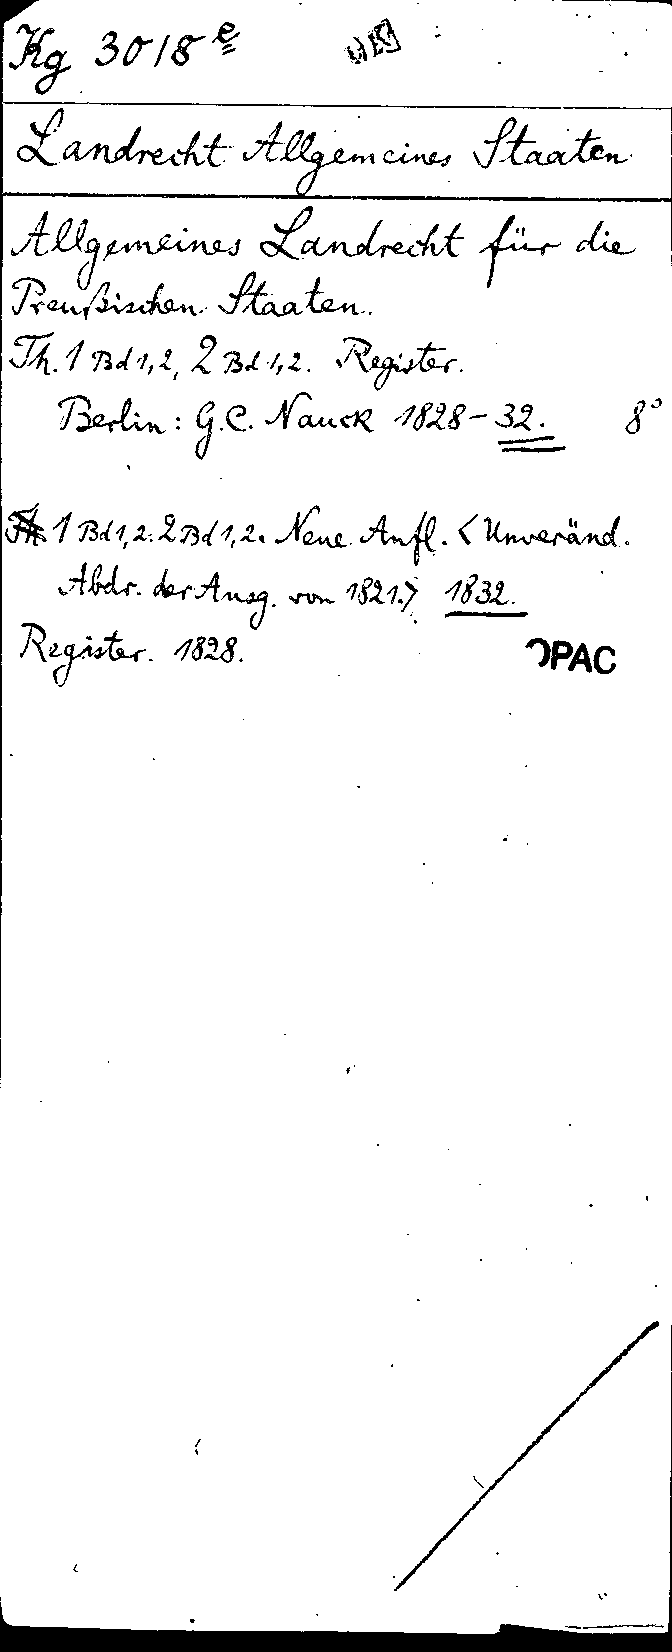 Kg 3018 e
Landrecht Allgemeines Staaten
Allgemeines Landrecht für die
Preußischen Staaten.
Th. 1 Bd 1,2, 2 Bd 1,2. Register.
Berlin: G.C. Nauck 1828-32. 8°
Th 1 Bd 1,2. 2 Bd 1,2. Neue Aufl. <Unveränd.
Abdr. der Ausg. von 1821.> 1832.
Register. 1828.
OPAC